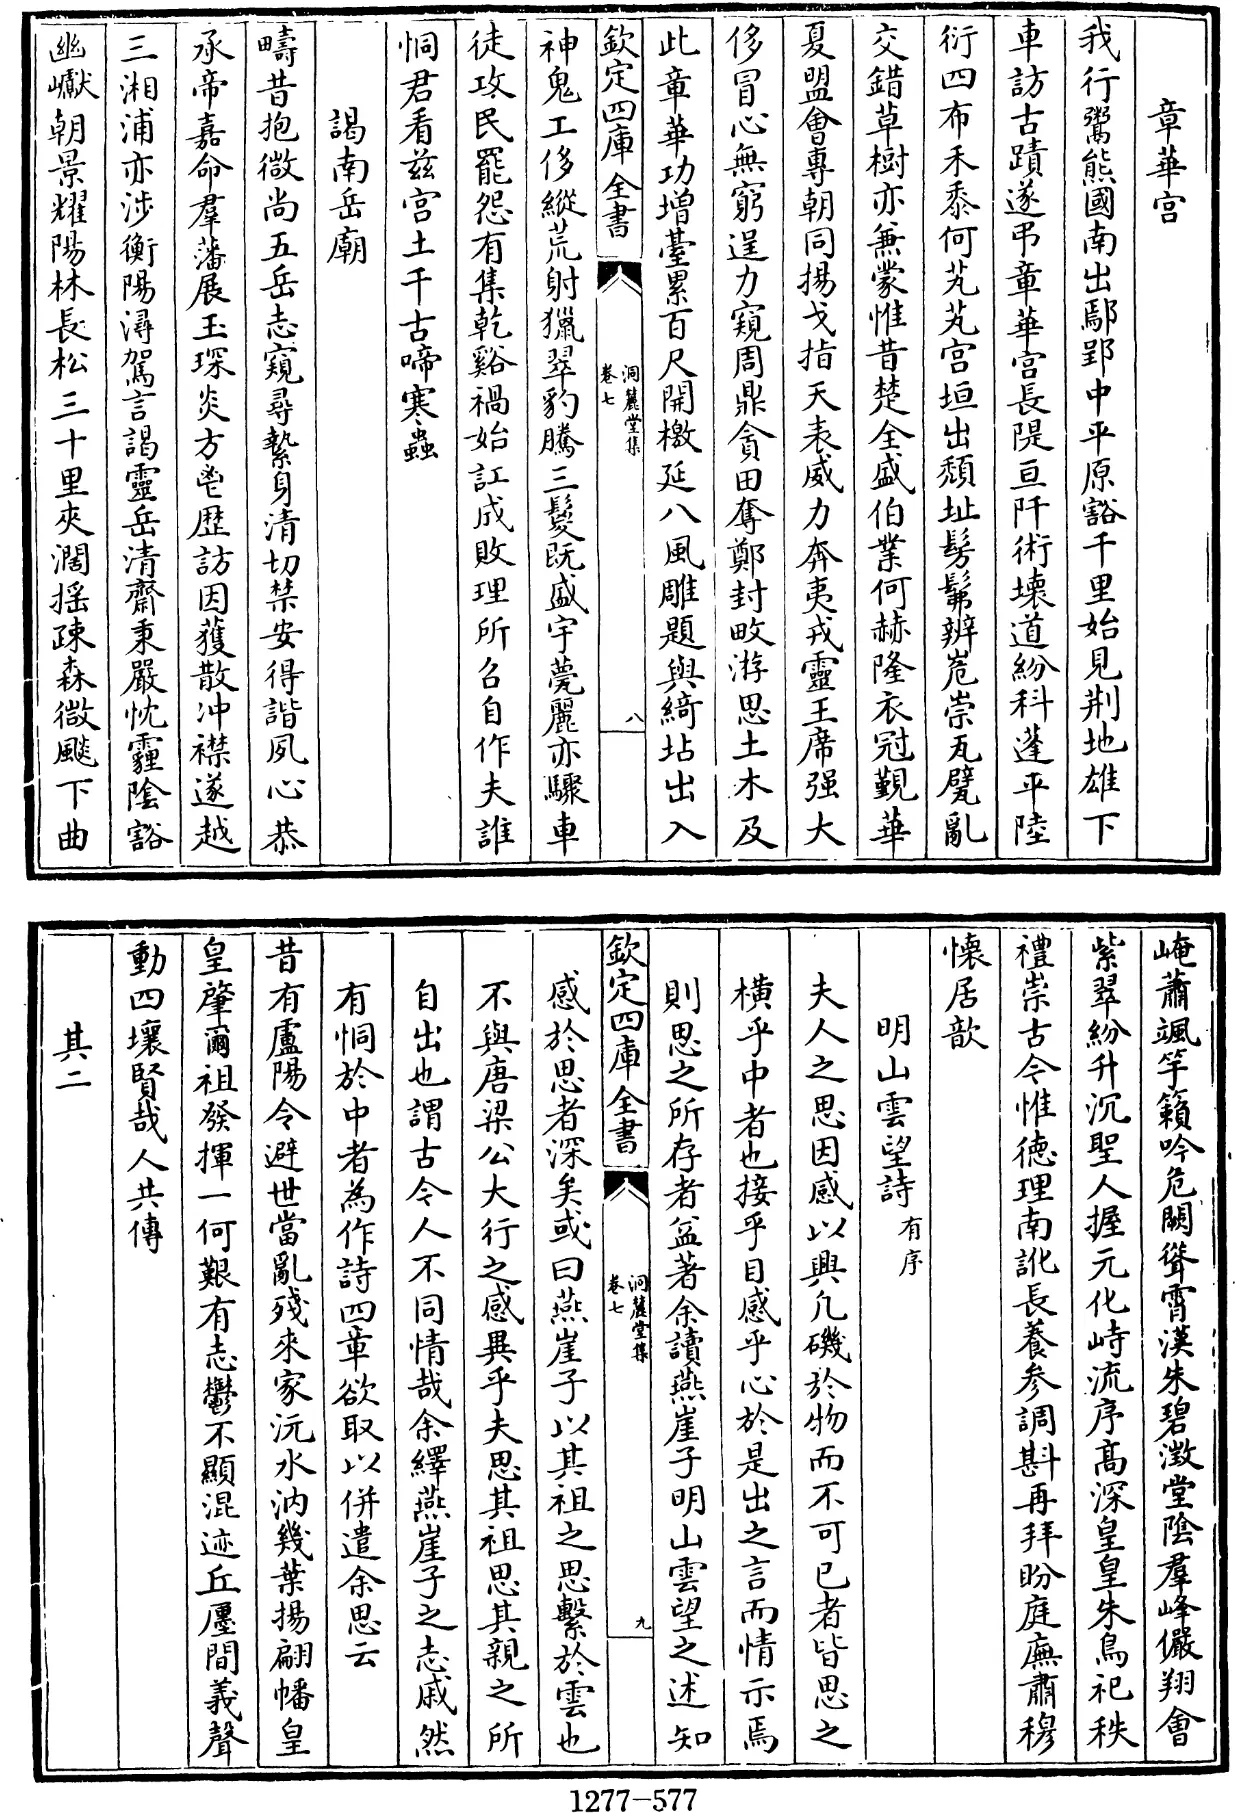 章華宫
我行鬻熊國南出鄢郢中平原豁千里始見荆地雄下
車訪古蹟遂弔章華宫長隄亘阡術壊道紛科蓬平陸
衍四布禾黍何芃芃宫垣出頽址髣髴辨嵬崇瓦甓亂
交錯草樹亦兼蒙惟昔楚全盛伯業何赫隆衣冠覲華
夏盟會専朝同揚戈指天表威力奔夷戎靈王席强大
侈冒心無窮逞力窺周鼎貪田奪鄭封畋游思土木及
此章華功增臺累百尺開檄延八風雕題與綺坫出入
欽定四庫全書
洞麓堂集
卷七
八
神鬼工侈縱荒射獵翠豹騰三髮既盛宇甍麗亦驟車
徒攻民罷怨有集乾谿禍始訌成敗理所召自作夫誰
恫君看兹宫土千古啼寒蟲
謁南岳廟
疇昔抱微尚五岳志窺尋縶身清切禁安得諧夙心恭
承帝嘉命羣藩展玉琛炎方鬯歴訪因獲散冲襟遂越
三湘浦亦涉衡陽潯駕言謁靈岳清齋秉嚴忱霾陰豁
幽巘朝景耀陽林長松三十里夾澗摇疎森微飈下曲
崦蕭颯竽籟吟危闕聳霄漢朱碧澂堂陰羣峰儼翔會
紫翠紛升沉聖人握元化峙流序髙深皇皇朱鳥祀秩
禮崇古今惟徳理南訛長養參調斟再拜盼庭廡肅穆
懷居歆
明山雲望詩有序
夫人之思因感以興凡磯於物而不可已者皆思之
横乎中者也接乎目感乎心於是出之言而情示焉
則思之所存者益著余讀燕崖子明山雲望之述知
欽定四庫全書
洞麓堂集
卷七
九
感於思者深矣或曰燕崖子以其祖之思繫於雲也
不與唐梁公大行之感異乎夫思其祖思其親之所
自出也謂古今人不同情哉余繹燕崖子之志戚然
有恫於中者為作詩四章欲取以併遣余思云
昔有盧陽令避世當亂殘來家沅水汭幾葉揚翩幡皇
皇肇爾祖發揮一何艱有志鬱不顯混迹丘廛間義聲
動四壤賢哉人共傳
其二
1277-577